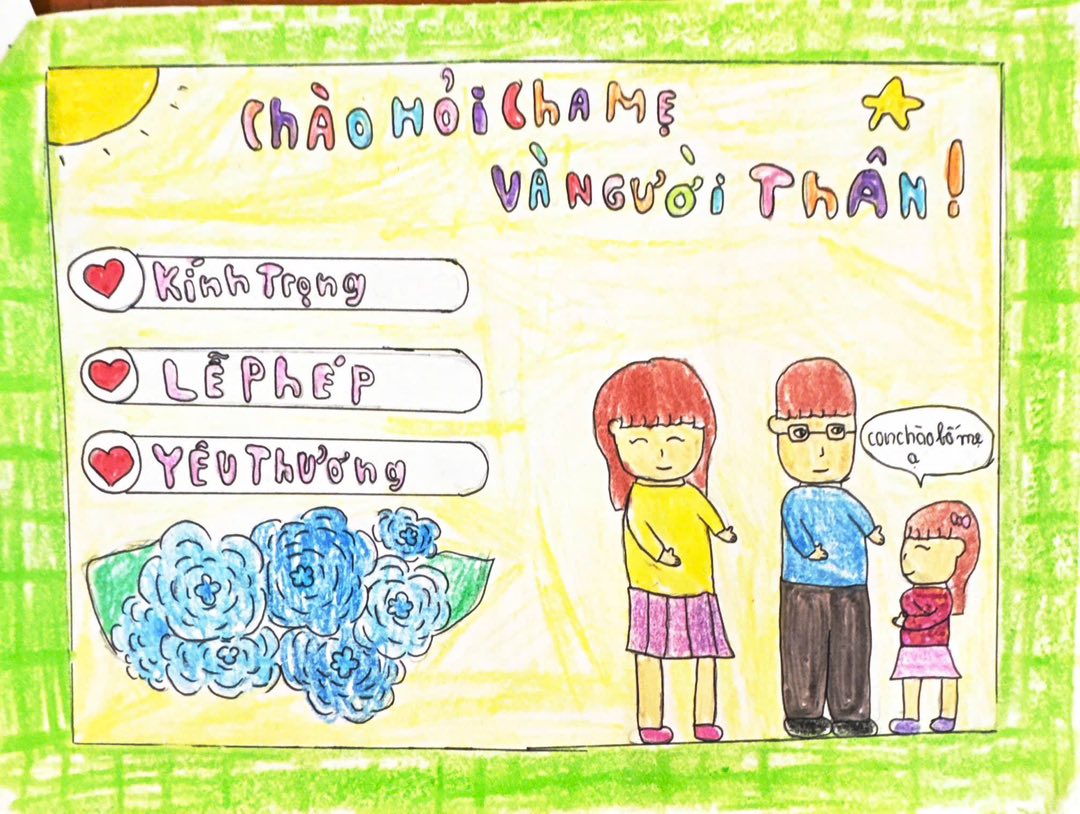 CHÀO HỎI CHA MẸ
VÀ NGƯỜI THÂN!
Kính Trọng
LỄ PHÉP
YÊU Thương
con chào bố mẹ
ạ